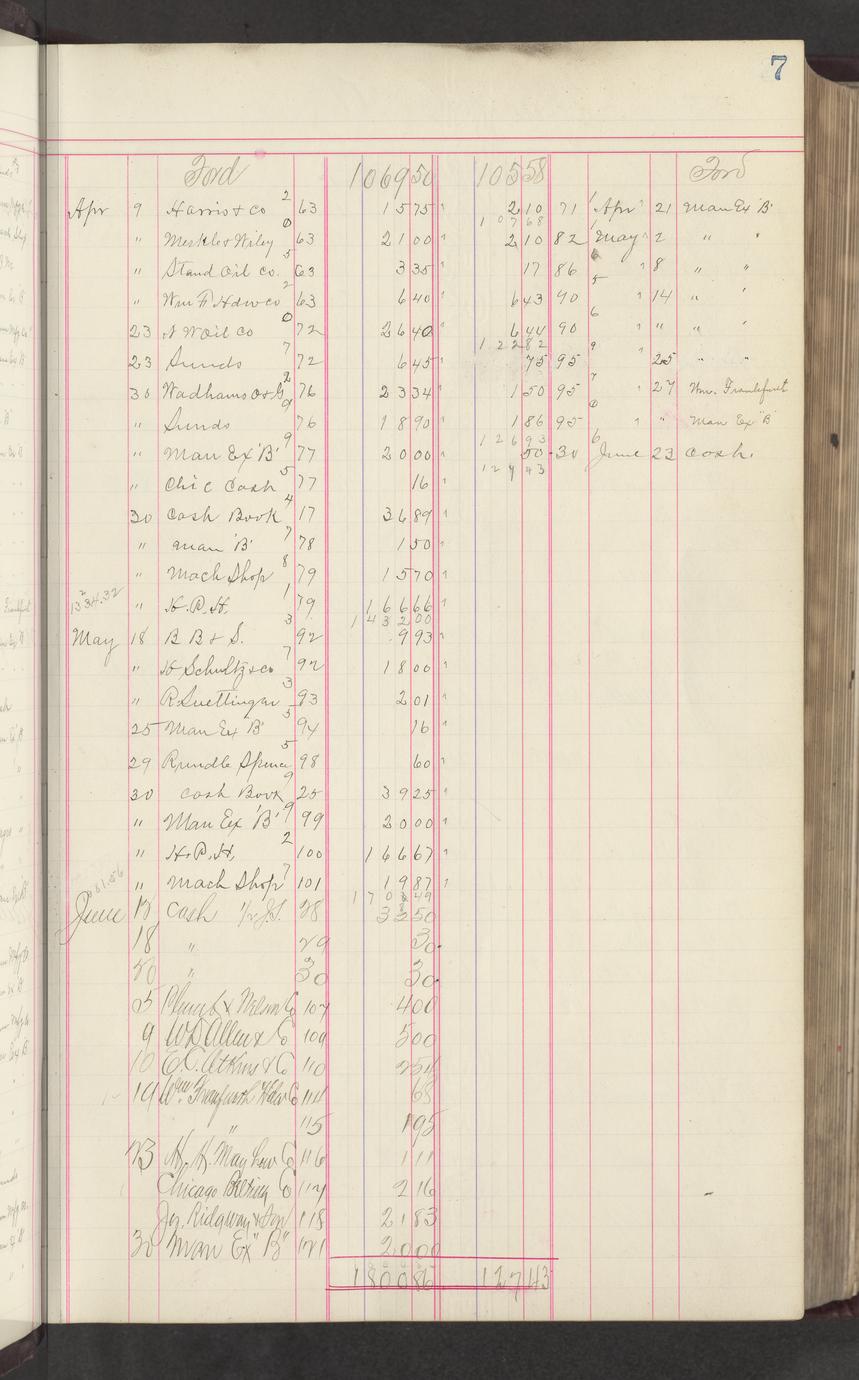 7
Ford 1069 50 105 58 Ford
Apr 9 Harris & Co 2 63 15 75 2 10 71 1 Apr 21 Man Ex 'B'
107 68
" Merkle & Wiley 0 63 21 00 2 10 82 1 May 2 " "
" Stand Oil Co. 5 63 3 35 17 86 6 " 8 " "
" Wm F. Hdw Co 2 63 6 40 6 43 90 5 " 14 " "
23 N W Oil Co 0 72 26 40 6 44 90 6 " " " "
122 82
23 Sunds 7 72 6 45 75 95 9 " 25 " "
30 Wadhams O & G 2 76 23 34 1 50 95 7 " 27 Wm. Frankfurt
" Sunds 9 76 18 90 1 86 95 0 " " Man Ex "B"
126 93
" Man Ex 'B' 9 77 20 00 50 30 6 June 23 Cash.
127 43
" Chic Cash 5 77 16
30 Cash Book 4 17 36 89
" Man 'B' 7 78 1 50
" Mach Shop 8 79 15 70
1334.32 " H.P.H. 1 79 166 66
1432 00
May 18 B B & S. 3 92 9 93
" H Schultz & Co 7 92 18 00
" R. Suettinger 3 93 2 01
25 Man Ex 'B' 5 94 16
29 Rundle Spence 5 98 60
30 Cash Book 9 25 39 25
" Man Ex 'B' 9 99 20 00
" H.P.H. 2 100 166 67
" Mach Shop 7 101 19 87
June 12 Cash 28 32 50
18 " 29 30
20 " 30 30
5 & Nelson Co 107 4 00
9 W D Allen & Co 109 5 00
10 E.C. Atkins & Co 110 2 54
19 Wm. Frankfurth Hdw Co 114 68
" 115 1 95
23 H. H. Mayhew Co 116 1 11
Chicago Belting Co 117 2 16
Jas. Ridgway & Son 118 21 83
30 Man Ex "B" 121 20 00
1800 86 127 43